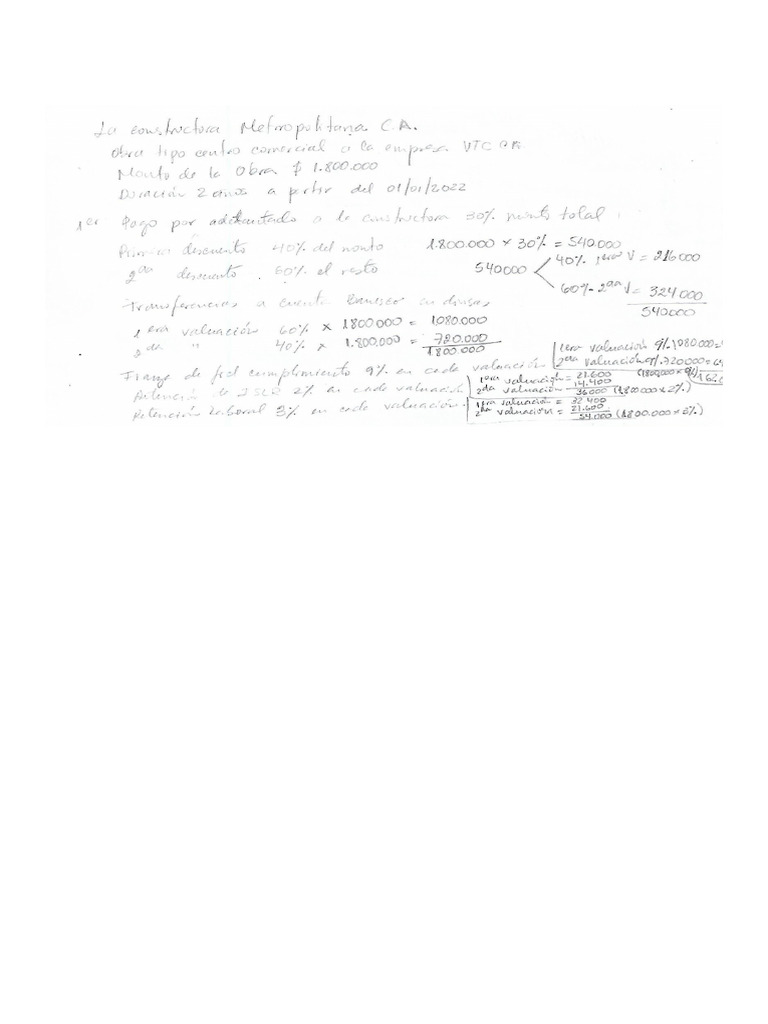 La constructora Metropolitana C.A.
Obra tipo centro comercial a la empresa VTC
Monto de la Obra $ 1.800.000
Duración 2 años a partir del 01/01/2022
1er Pago por adelantado a la constructora 30% monto total:
Primera descuento 40% del monto 1.800.000 x 30% = 540.000
2da descuento 60% el resto 540000 40% 1era V = 216000
60% 2da V = 324000
540.000
Transferencias a cuenta Banesco en divisas
1era valuación 60% x 1800.000 = 1.080.000
2da " 40% x 1.800.000 = 720.000
1800.000
Fianza de fiel cumplimiento 9% en cada valuación
1era valuación 9% 1080.000=
2da valuación 9% 720.000=
(1800,000 x 9%) 162.0
Retención de ISLR 2% en cada valuación
1era valuación = 21.600
2da valuación 14.400
36000 (1.800.000 x 2%)
Retención Laboral 3% en cada valuación.
1era valuación = 32.400
2da valuación = 21.600
54.000 (1.800.000 x 3%)